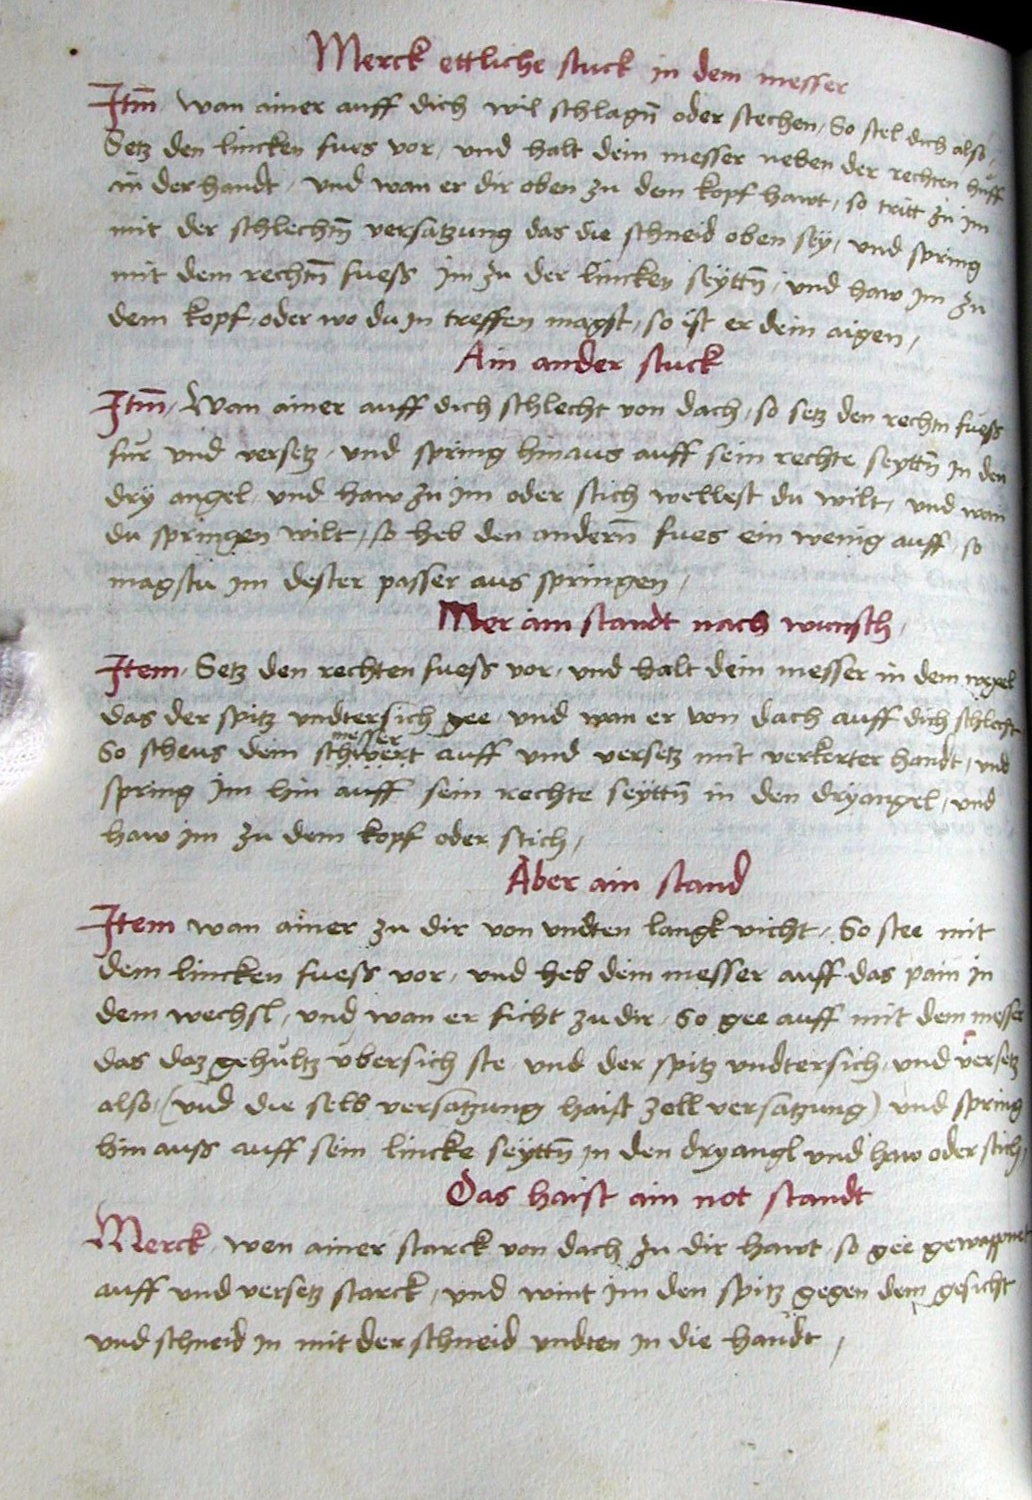 Merck ettliche stuck in dem messer
Itm̄ wan ainer auff dich wil schlagn̄ oder stechen / So stel dich also /
Setz den lincken fues vor / und halt dein messer neben der rechten huff
in der handt / und wan er dir oben zu dem kopf hawt / so tritt zu im
mit der schlechtn̄ versatzung das die schneid oben sey / und spring
mit dem rechtn̄ fuess im zu der lincken seyttn̄ / und haw im zu
dem kopf / oder wo du in treffen magst / so ist er dein aigen /
Ain ander stuck
Itm̄ / Wan ainer auff dich schlecht von dach / so setz den rechtn fuess
für und versetz / und spring hinaus auff sein rechte seyttn̄ in den
dry angel / und haw zu im oder stich wellest du wilt / und wan
du springen wilt / so heb den andern̄ fues ein wenig auff / so
magstu im dester passer aus springen /
Mer ain standt nach wunsch /
Item / Setz den rechten fuess vor / und halt dein messer in dem
das der spitz undtersich gee / und wan er von dach auff dich schlecht
So scheus dein schwert messer auff und versetz mit verkerter handt / und
spring im hin auff sein rechte seyttn̄ in den dryangel / und
haw im zu dem kopf oder stich /
Aber ain stand
Item wan ainer zu dir von undten langk vicht / So stee mit
dem lincken fuess vor / und heb dein messer auff das pain in
dem wechsl / und wan er ficht zu dir / So gee auff mit dem messer
das daz gehültz übersich ste / und der spitz undtersich / und versetz
also / (und die selb versatzung haist zell versatzung) und spring
hin auss auff sein lincke seyttn̄ in den dryangl und haw oder stich /
Das haist ain not standt
Merck / wen ainer starck von dach zu dir hawt / so gee gewappnet
auff und versetz starck / und wint im den spitz gegen dem gesicht
und schneid in mit der schneid undten in die handt /